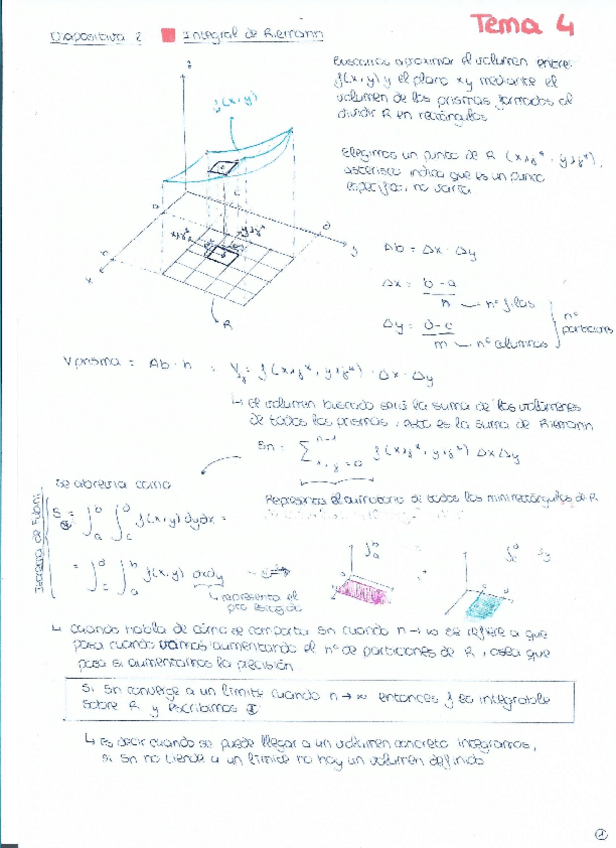 Tema 4
Diapositiva 2 Integral de Riemann
Buscamos aproximar el volumen entre
f(x,y) y el plano xy mediante el
volumen de los prismas formados al
dividir R en rectángulos
Elegimos un punto de R
asterisco indica que es un punto
específico, no varía
z
f(x,y)
a
c
d
y
b
x
R
Ab = Δx · Δy
Δx = b-a
n → nº filas
Δy = d-c
m → nº columnas
nº
particiones
Vprisma = Ab · h =
· Δx · Δy
↳ el volumen buscado será la suma de los volúmenes
de todos los prismas, esto es la suma de Riemann
Sn =
n-1
Σ
Δx Δy
se abrevia como
Representa el sumatorio de todos los mini rectángulos de R
Teorema de Fubini
S = ∫ₐᵇ ∫꜀ᵈ f(x,y) dy dx =
= ∫꜀ᵈ ∫ₐᵇ f(x,y) dx dy
↳ representa el
↳ cuando habla de cómo se comporta Sn cuando n → ∞ se refiere a que
pasa cuando vamos aumentando el nº de particiones de R, o sea que
pasa si aumentamos la precisión
Si Sn converge a un límite cuando n → ∞ entonces f es integrable
sobre R y escribimos
↳ Es decir cuando se puede llegar a un volumen concreto integramos,
si Sn no tiende a un límite no hay un volumen definido
1